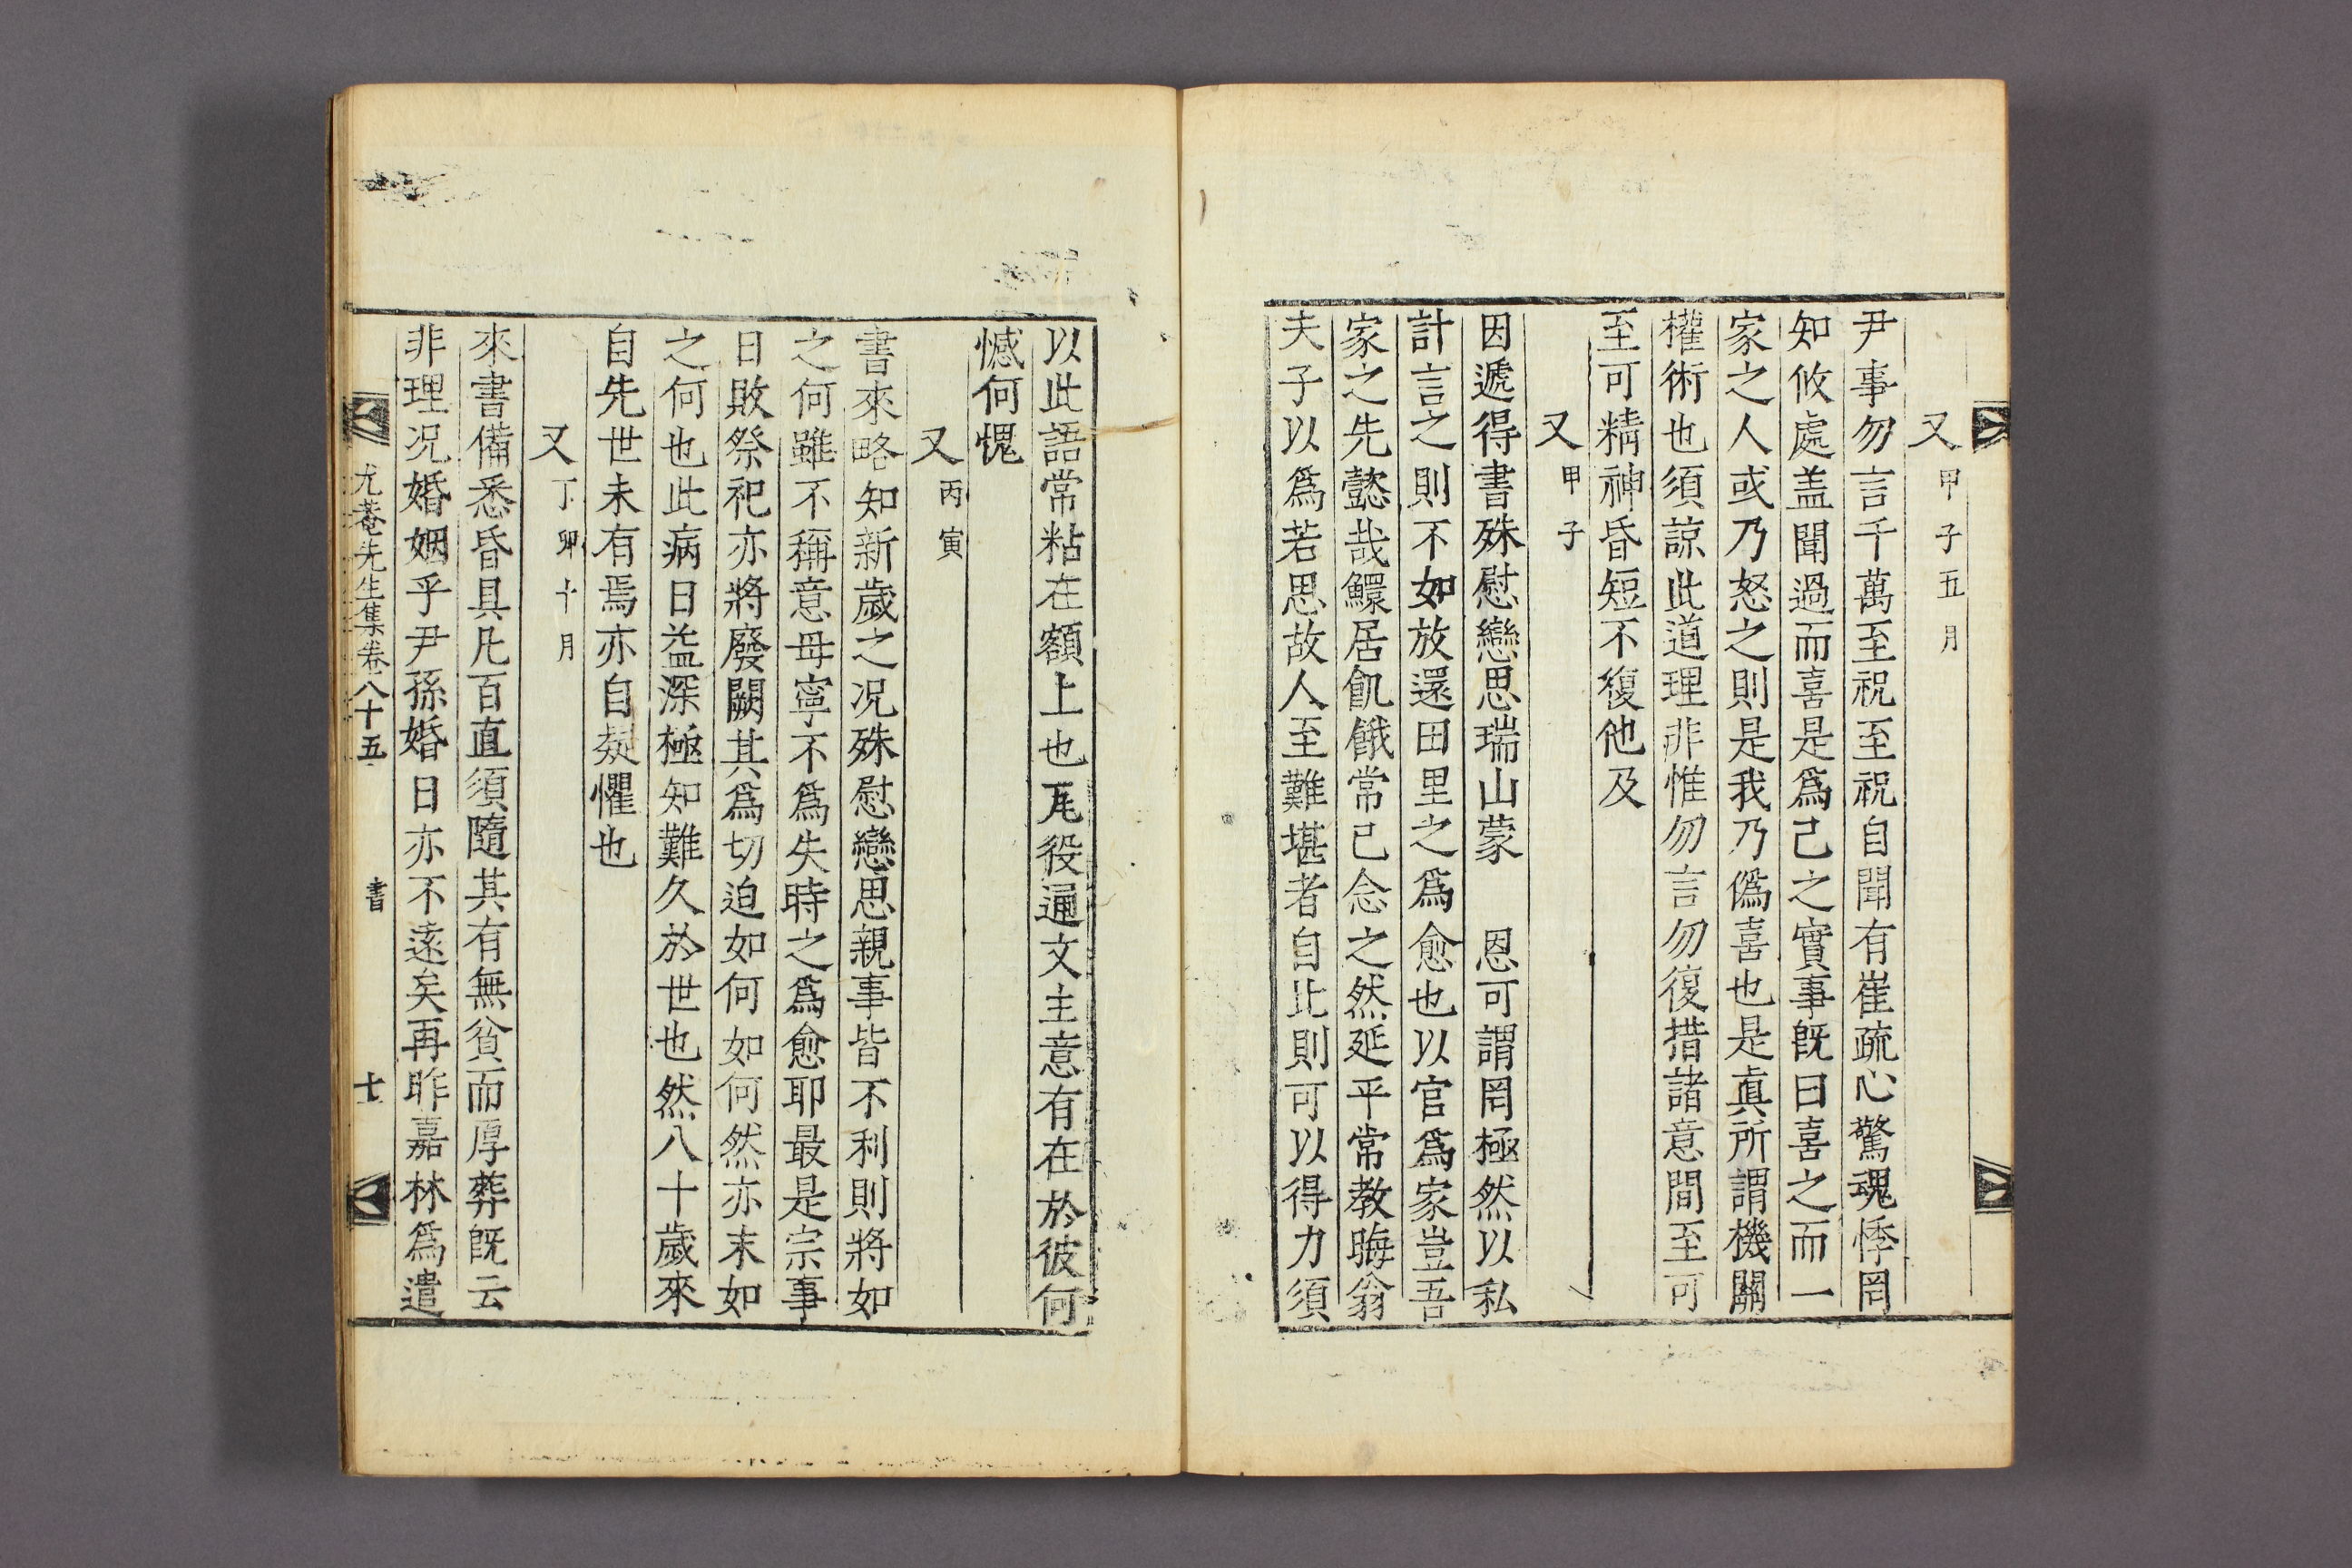 又甲子五月
尹事勿言千萬至祝至祝自聞有崔疏心驚魂悸罔
知攸處盖聞過而喜是爲己之實事旣曰喜之而一
家之人或乃怒之則是我乃僞喜也是眞所謂機關
權術也須諒此道理非惟勿言勿復措諸意間至可
至可精神昏短不復他及
又甲子
因遞得書殊慰戀思瑞山蒙 恩可謂罔極然以私
計言之則不如放還田里之爲愈也以官爲家豈吾
家之先懿哉鰥居飢餓常己念之然延平常敎晦翁
夫子以爲若思故人至難堪者自此則可以得力須
以此語常粘在額上也尾役通文主意有在於彼何
憾何愧
又丙寅
書來略知新歲之况殊慰戀思親事皆不利則將如
之何雖不稱意毋寧不爲失時之爲愈耶最是宗事
日敗祭祀亦將廢闕其爲切迫如何如何然亦末如
之何也此病日益深極知難久於世也然八十歲來
自先世未有焉亦自疑懼也
又丁卯十月
來書備悉昏具凡百直須隨其有無貧而厚葬旣云
非理况婚姻乎尹孫婚日亦不遠矣再昨嘉林爲遣
尤菴先生集卷八十五 書 七